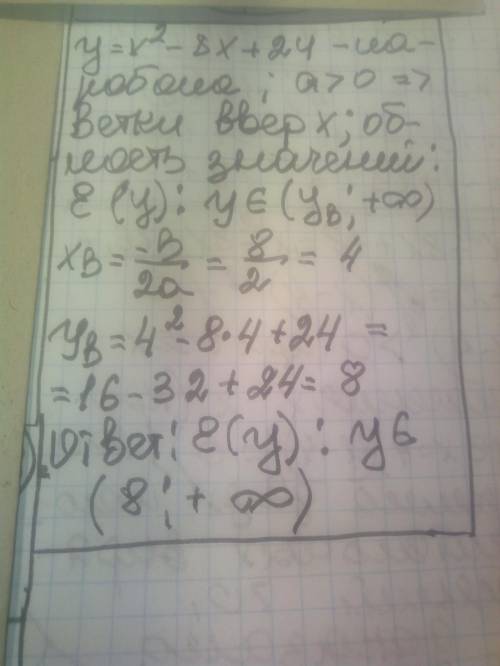 y=x²-8x+24 -па-
робола; a>0 =>
ветки вверх; об-
ласть значений:
E(y): y∈(yв; +∞)
xв = -в/2a = 8/2 = 4
yв = 4² - 8·4 + 24 =
= 16 - 32 + 24 = 8
Ответ: E(y): y∈
(8; +∞)